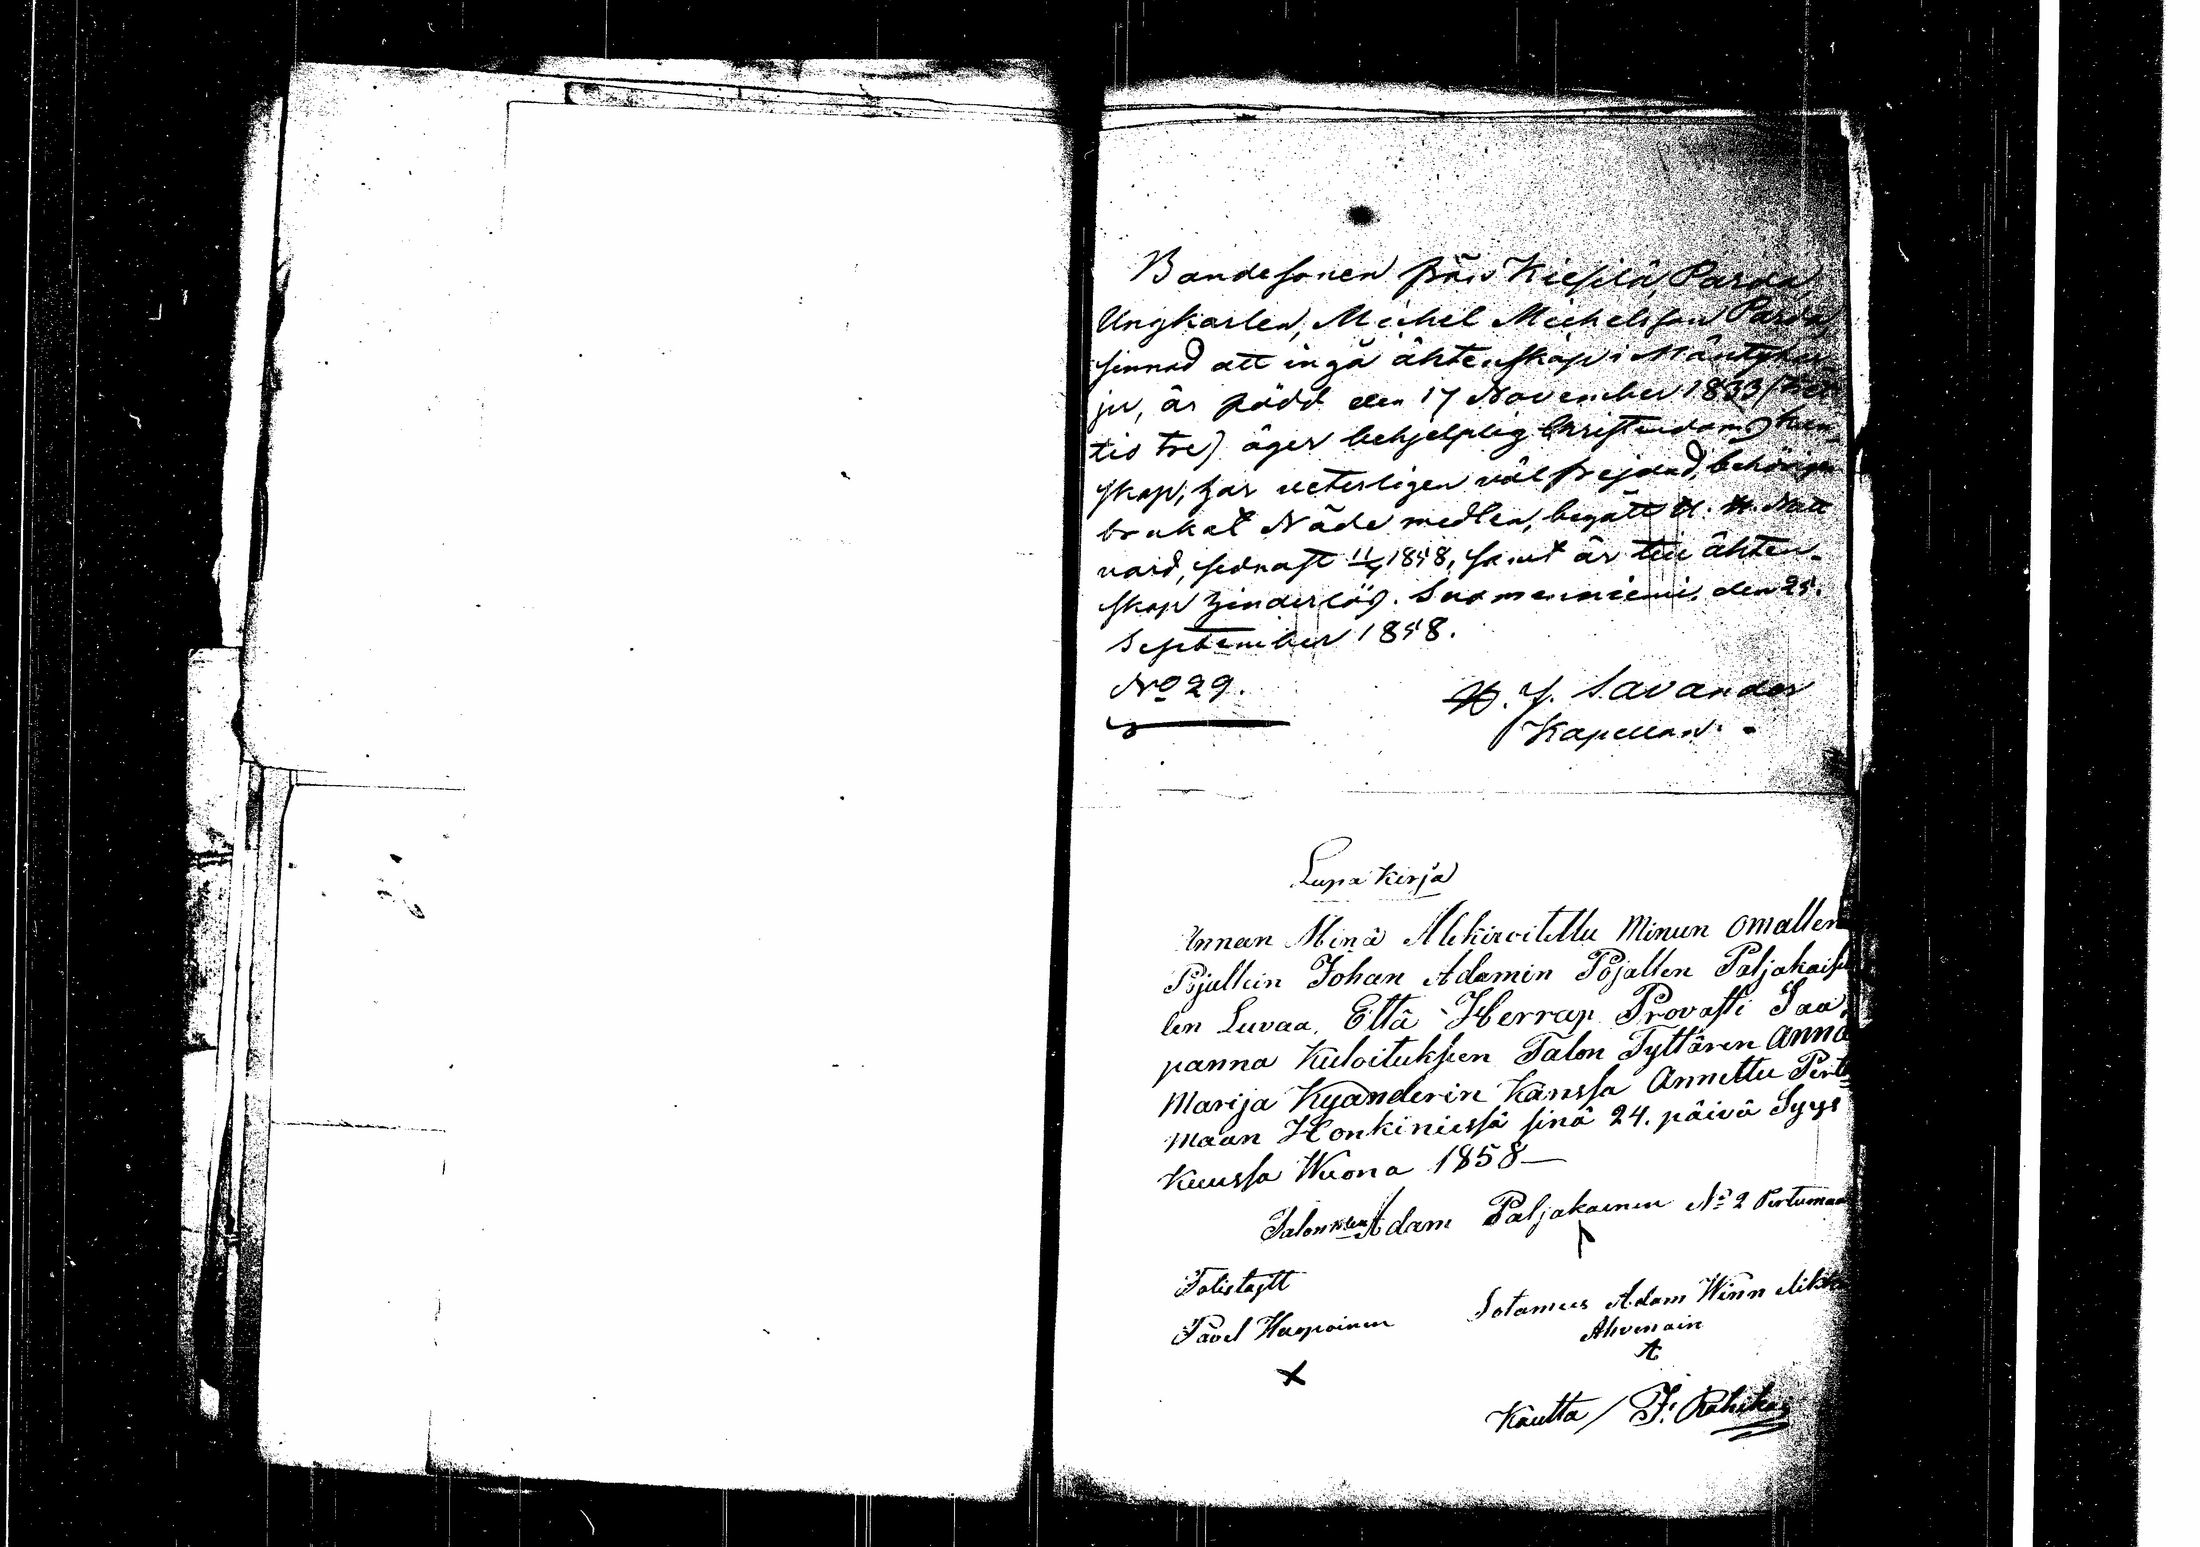 Bondesonen från Kiesilä, Parda
Ungkarlen, Michel Michelsson Parda,
sinnad att ingå ähtenskap i Mäntyhar
ju, är född den 17 November 1833 (tret
tis tre) äger behjelplig Christendoms kun
skap, har veterligen väl frejdad, behörigen
brukat Nåde medlen, begått H. H. Natt
vard, sednast 1858, samt är till ähten-
skap hinderlös. Suomenniemi, den 25.
September 1858.
No 29.
H. J. Savander
Kapellan.
Lupa Kirja
Annan Minä Allekirjoitettu Minun omallen
Pojallein Johan Adamin Pojallen Paljakaisel
len Luvaa, Että Herran Provasti Saa
panna Kuloituksen Talon Tyttären Anna
Marija Kyanderin Kanssa Annettu Pertu
maan Honkiniessä sinä 24. päivä Syys
Kuussa Wuona 1858—
Adam Paljakainen No 2 Pertumaa
Totistajtt
Pavel Haapoinen
Sotamies Adam Winn
Ahvenain
Kautta / J.